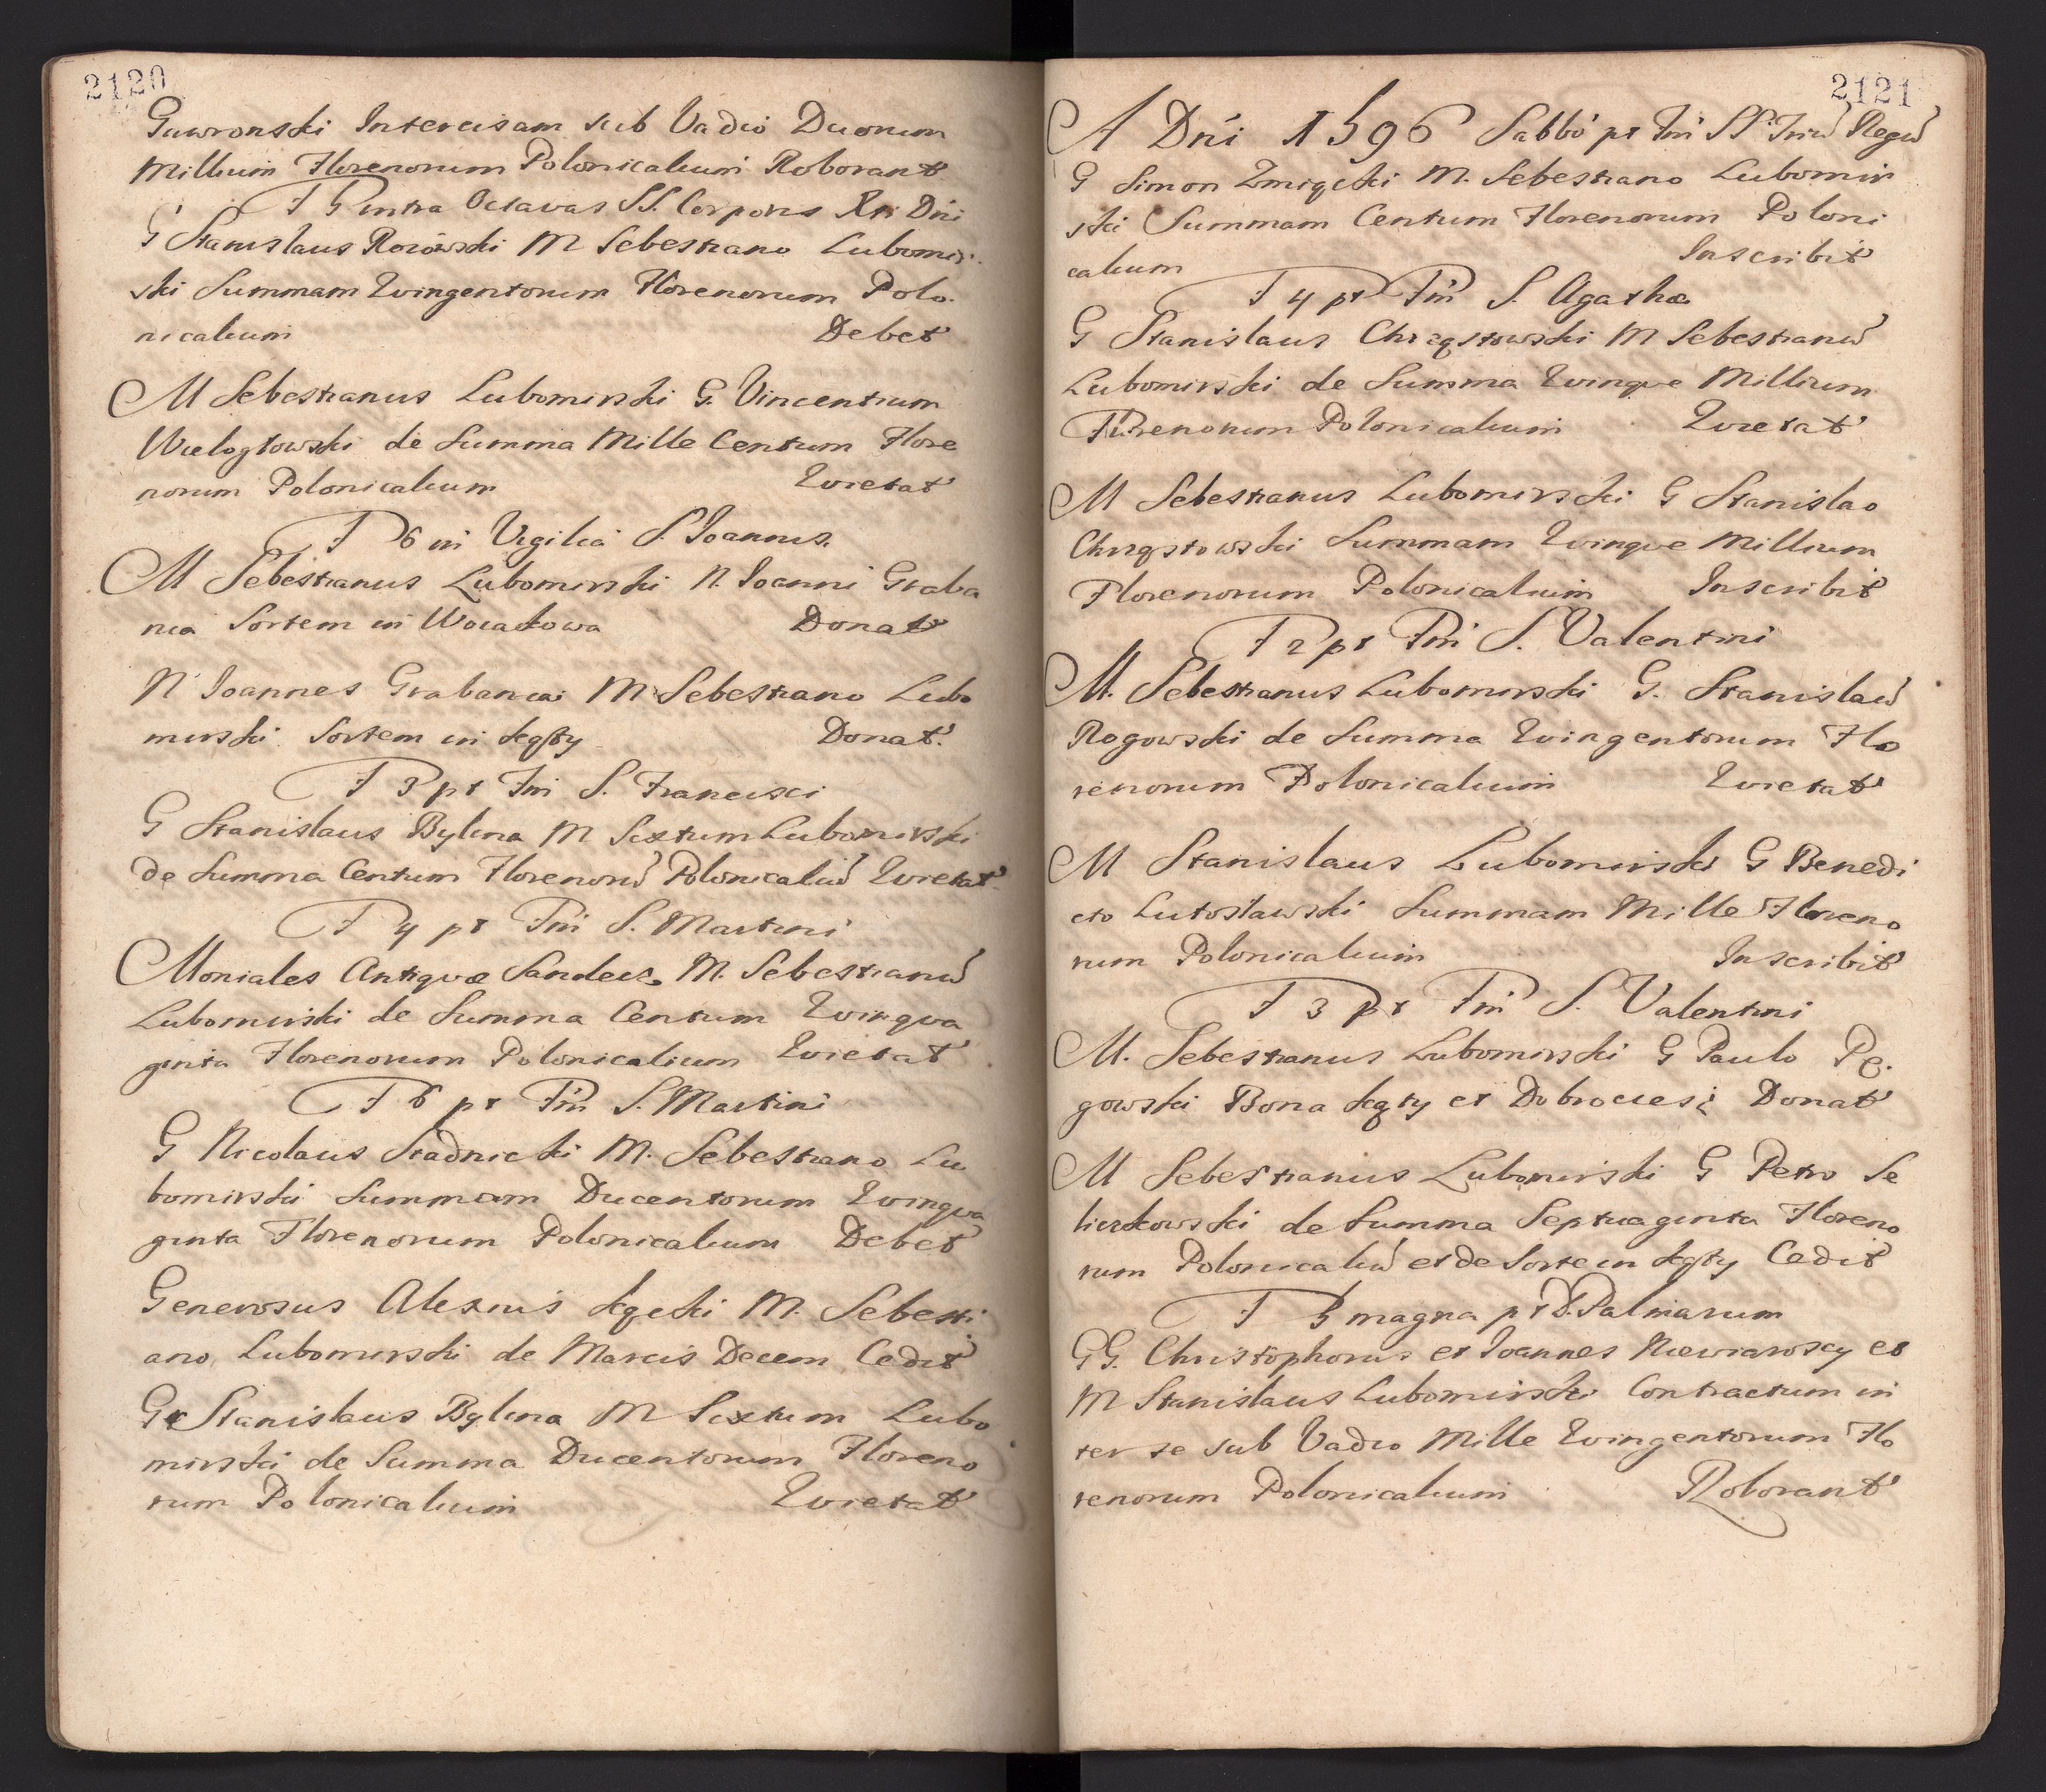 2120
Gawronski Intercisam sub Vadio Duorum
Millium Florenorum Polonicalium Roborant
F 5 intra Octavas SS. Corporis Xti Dni
G Stanislaus Rozowski M Sebestiano Lubomir-
ski Summam Quingentorum Florenorum Polo-
nicalium Debet
M Sebestianus Lubomirski G. Vincentium
Wielogłowski de Summa Mille Centum Flore
norum Polonicalium Quietat
F 6 in Vigilia S. Joannis.
M Sebestianus Lubomirski N. Joanni Graba
nia Sortem in Donat
N Joannes Grabania M Sebestiano Lubo
mirski Sortem in Łąkty Donat.
F 3 pt Fm S. Francisci
G Stanislaus Bylina M Sixtum Lubomirski
de Summa Centum Florenorũ Polonicaliũ Quietat
F 4 pt Fm S. Martini
Moniales Antiquæ Sandecz M. Sebestianũ
Lubomirski de Summa Centum Quinqua
ginta Florenorum Polonicalium Quietat
F 6 pt Fm S. Martini
G Nicolaus Stadnicki M. Sebestiano Lu
bomirski Summam Ducentorum Quinqua
ginta Florenorum Polonicalium Debet
Generosus Alexius Łącki M. Sebesti
ano Lubomirski de Marcis Decem Cedit
G Stanislaus Bylina M Sixtum Lubo
mirski de Summa Ducentorum Floreno
rum Polonicalium Quietat
2121
A Dni 1596 Sabbo pt Fm SS. Triũ Regũ
G Simon Zmiącki M. Sebestiano Lubomir
ski Summam Centum Florenorum Poloni
calium Inscribit
F 4 pt Fm S. Agathæ
G Stanislaus Chrząstowski M Sebestianũ
Lubomirski de Summa Quinque Millium
Florenorum Polonicalium Quietat
M Sebestianus Lubomirski G Stanislao
Chrząstowski Summam Quinque Millium
Florenorum Polonicalium Inscribit
F 2 pt Fm S. Valentini
M. Sebestianus Lubomirski G. Stanislaũ
Rogowski de Summa Quingentorum Flo
renorum Polonicalium Quietat
M Stanislaus Lubomirski G Benedi
cto Lutosławski Summam Mille Floreno
rum Polonicalium Inscribit
F 3 pt Fm S. Valentini
M. Sebestianus Lubomirski G Paulo Pę-
gowski Bona Łąkty et Dobrociesz Donat
M Sebestianus Lubomirski G Petro Se
cierkowski de Summa Septuaginta Floreno
rum Polonicaliũ et de Sorte in Łąkty Cedit
F 3 magna pt D. Palmarum
GG. Christophorus et Joannes Niewiaroscy et
M Stanislaus Lubomirski Contractum in
ter se sub Vadio Mille Quingentorum Flo
renorum Polonicalium Roborant